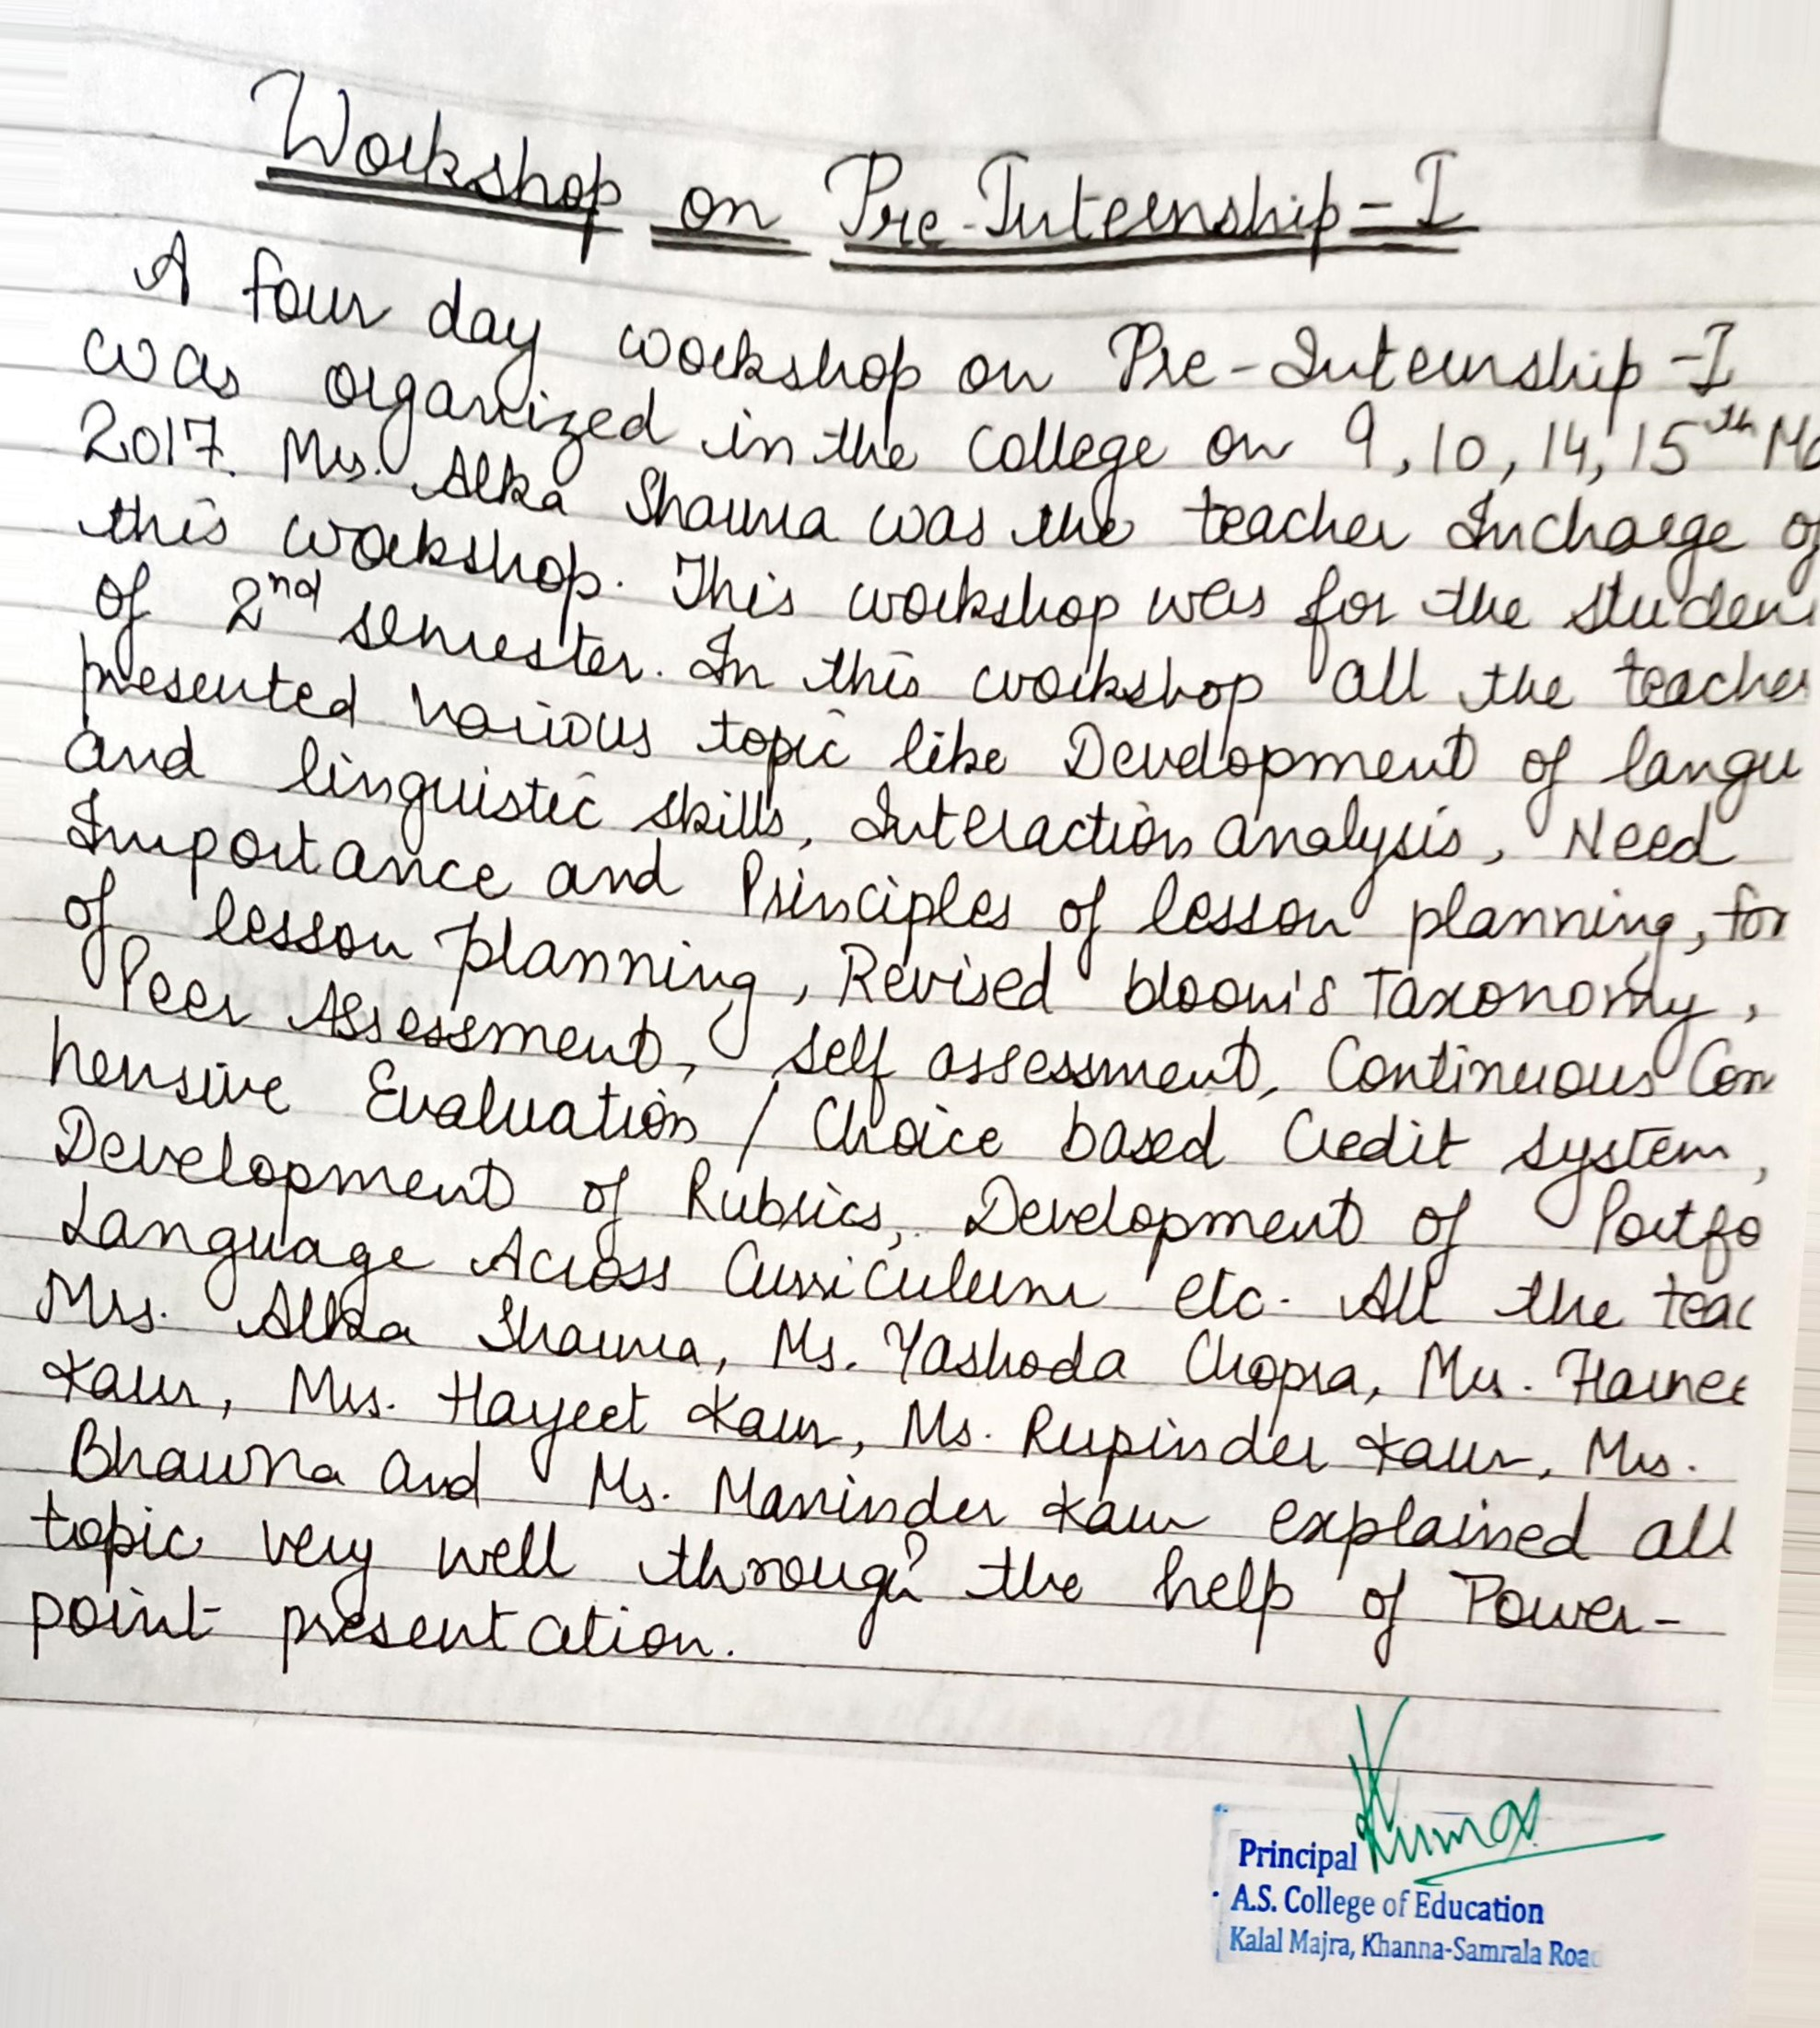 Workshop on Pre-Internship-I
A four day workshop on Pre-Internship-I
was organized in the College on 9, 10, 14, 15th Ma
2017. Mrs. Alka Sharma was the teacher Incharge of
this workshop. This workshop was for the studen
of 2nd semester. In this workshop all the teacher
presented various topic like Development of langu
and linguistic skills, Interaction analysis, Need
Importance and Principles of lesson planning, for
of lesson planning, Revised bloom's Taxonomy,
Peer Assessment, Self assessment, Continuous Com
hensive Evaluation / Choice based Credit system,
Development of Rubrics, Development of Portfo
Language Across Curriculum etc. All the teac
Mrs. Alka Sharma, Ms. Yashoda Chopra, Mrs. Harnee
Kaur, Mrs. Harjeet Kaur, Ms. Rupinder Kaur, Mrs.
Bhawna and Ms. Maninder Kaur explained all
topic very well through the help of Power-
point presentation.
Kumar
Principal
A.S. College of Education
Kalal Majra, Khanna-Samrala Road